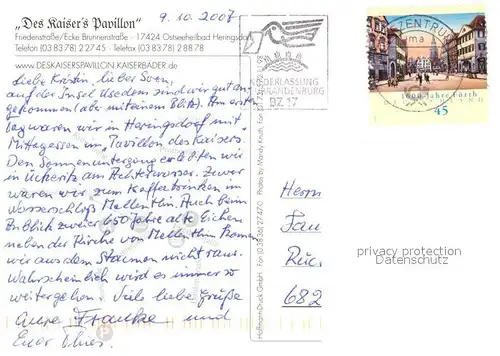 „Des Kaiser's Pavillon"
Friedenstraße/Ecke Brunnenstraße - 17424 Ostseeheilbad Heringsdorf
Telefon (03 83 78) 2 27 45 - Telefax (03 83 78) 2 88 78
WWW.DESKAISERSPAVILLON.KAISERBÄDER.de
9.10.2007
Liebe Kristin, lieber Sven,
auf der Insel Usedom sind wir gut an-
gekommen (alle mit einem B&B). Am ersten
Tag waren wir in Heringsdorf mit
Mittagessen im „Pavillon des Kaisers.
Den Sonnenuntergang erlebten wir
in Ückeritz am Achterwasser. Zuvor
waren wir zum Kaffeetrinken im
Wasserschloß Mellenthin. Auch beim
Anblick zweier 650 Jahre alte Eichen
neben der Kirche von Mellenthin kamen
wir aus dem Staunen nicht raus.
Wahrscheinlich wird es immer so
weitergehen. Viele liebe Grüße
Eure Frauke und
Euer
NIEDERLASSUNG
BRANDENBURG
BZ 17
ZENTRUM
1000 Jahre Fürth
DEUTSCHLAND
45
HoffmannDruck GmbH · Fon (03836) 27470
Photo by Mandy Knuth, Fon
Herrn
682
privacy protection
Datenschutz